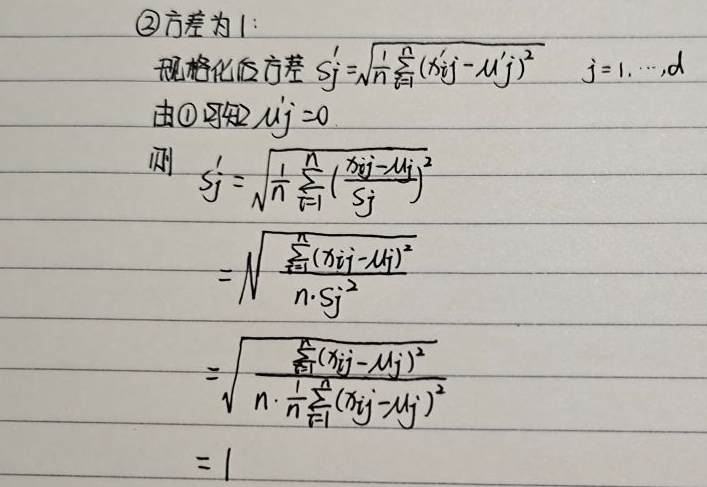 ②方差为1:
规格化后方差 Sj' = √(1/n ∑_{i=1}^{n} (x'ij - μ'j)²)   j=1,…,d
由①可知 μ'j = 0
则 Sj' = √(1/n ∑_{i=1}^{n} ((xij - μj)/Sj)²)
= √(∑_{i=1}^{n} (xij - μj)² / (n·Sj²))
= √(∑_{i=1}^{n} (xij - μj)² / (n·1/n ∑_{i=1}^{n} (xij - μj)²))
= 1